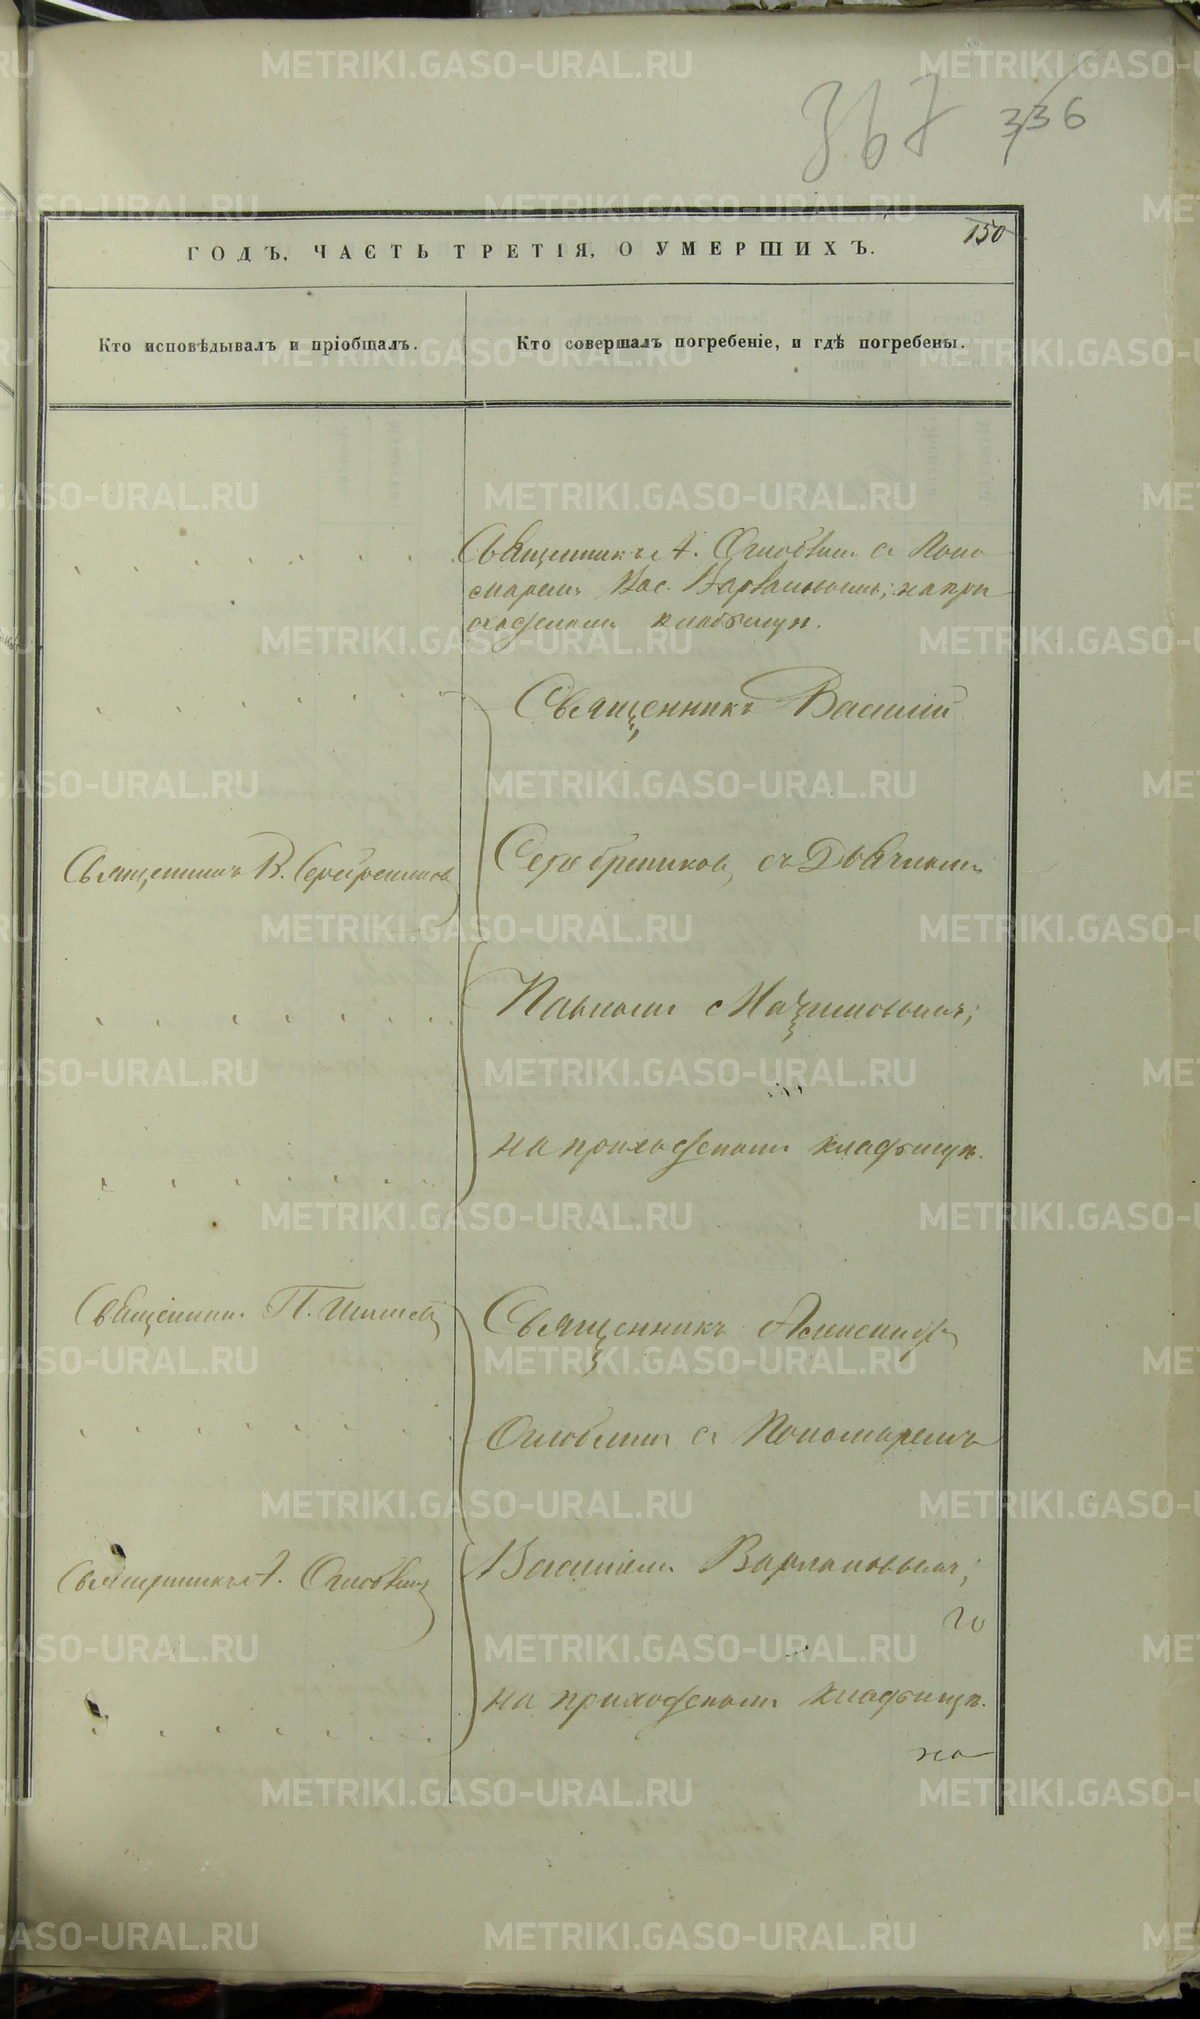 367 336
150
ГОДЪ. ЧАСТЬ ТРЕТІЯ, О УМЕРШИХЪ.
Кто исповѣдывалъ и пріобщалъ.
Кто совершалъ погребеніе, и гдѣ погребены.
Священникъ А. Оглоблинъ съ Поно
маремъ Вас. Варлаковымъ; на при
ходскомъ кладбищѣ.
Священникъ Василій
Священникъ В. Серебренниковъ
Серебрениковъ, съ Дьячкомъ
Павломъ
на приходскомъ кладбищѣ.
Священникъ П. Шишевъ
Священникъ Александръ
Оглоблинъ съ Пономаремъ
Священникъ А. Оглоблинъ
Василіемъ Варлаковымъ;
на приходскомъ кладбищѣ.
METRIKI.GASO-URAL.RU